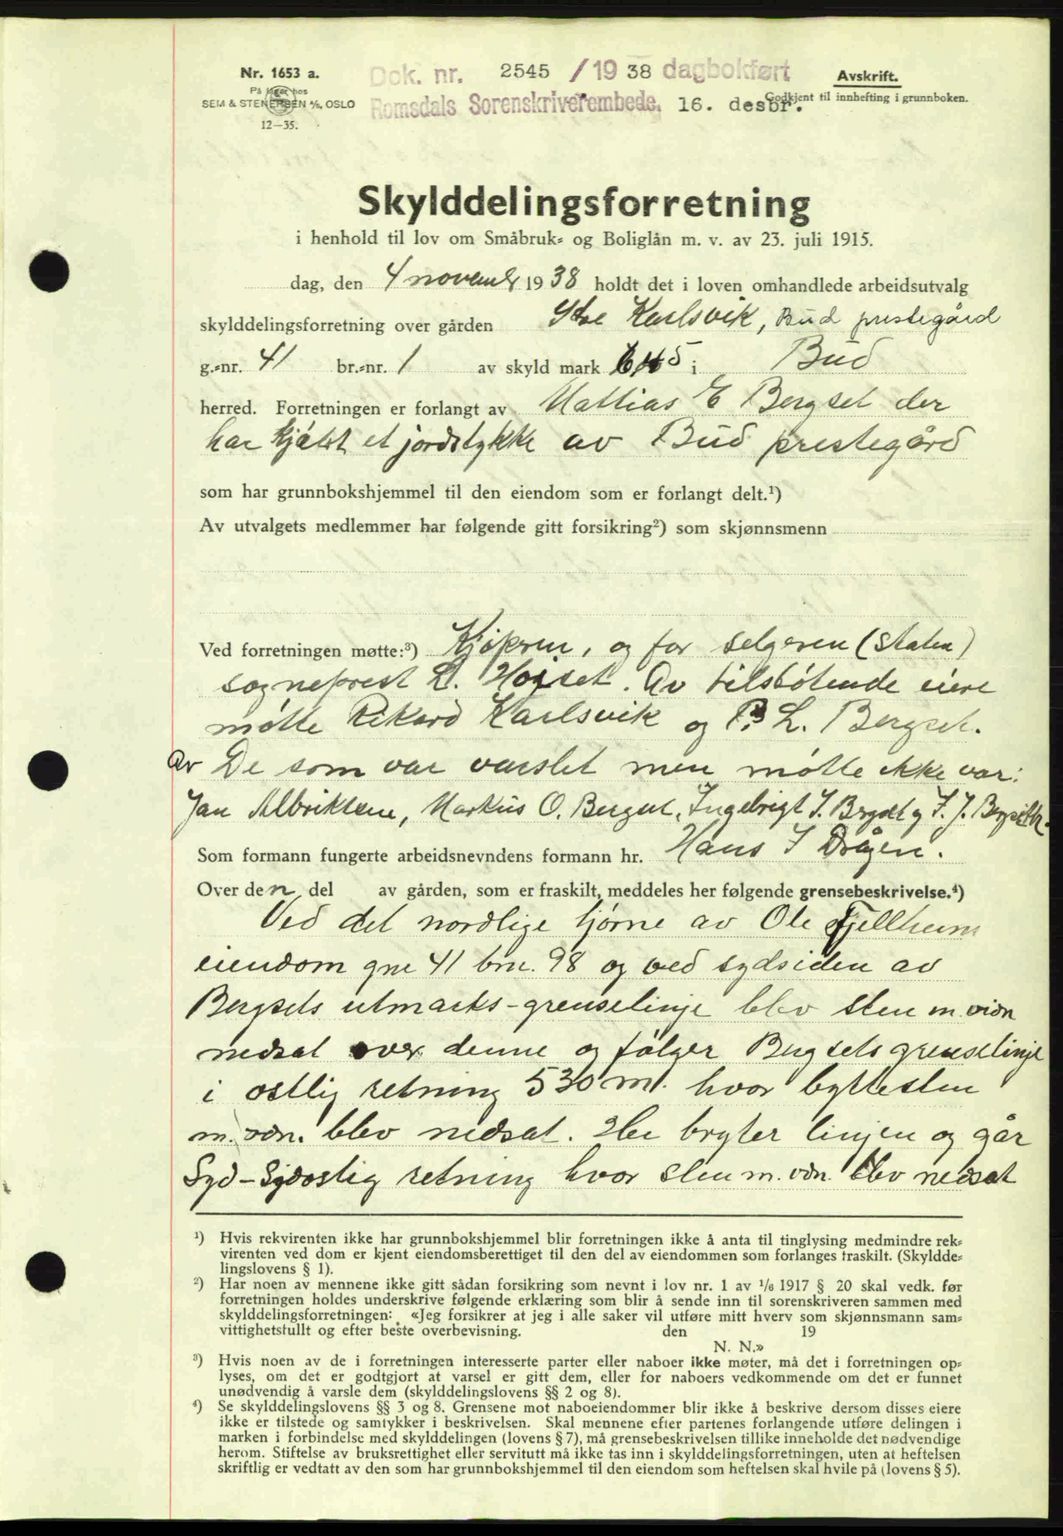 Nr. 1653 a.
På lager hos
SEM & STENERSEN A/S, OSLO
12—35.
Dok. nr. 2545 /1938 dagbokført
Romsdals Sorenskriverembede, 16. desbr.
Avskrift.
Godkjent til innhefting i grunnboken.
Skylddelingsforretning
i henhold til lov om Småbruk- og Boliglån m. v. av 23. juli 1915.
dag, den 4 novembr 1938 holdt det i loven omhandlede arbeidsutvalg
skylddelingsforretning over gården Karlsvik, Bud prestegård
g.-nr. 41 br.-nr. 1 av skyld mark i Bud
herred. Forretningen er forlangt av Mattias E Bergset der
har kjøbt et jordstykke av Bud prestegård
som har grunnbokshjemmel til den eiendom som er forlangt delt.¹)
Av utvalgets medlemmer har følgende gitt forsikring²) som skjønnsmenn
Ved forretningen møtte:³) Kjøperen, og for selgeren (staten)
sogneprest L. Hojset. Av tilstøtende eiere
møtte Rikard Karlsvik og P. L. Bergset.
Av De som var varslet men møtte ikke var:
Jan Albriktsne, Markus O. Bergset, Ingebrigt I. Bergset og I. J. Bergset
Som formann fungerte arbeidsnevndens formann hr. Hans I Drågen.
Over den del av gården, som er fraskilt, meddeles her følgende grensebeskrivelse.⁴)
Ved det nordlige hjørne av Ole Fjellheim
eiendom gnr 41 brn. 98 og ved sydsiden av
Bergsets utmarks-grenselinje blev sten m. vidn
nedsat over denne og følger Bergsets grenselinje
i ostlig retning 530 m. hvor byttesten
m. vdn. blev nedsat. Her bryter linjen og går
Syd-Sydostlig retning hvor sten m. vdn. blev nedsat
¹) Hvis rekvirenten ikke har grunnbokshjemmel blir forretningen ikke å anta til tinglysing medmindre rek-
virenten ved dom er kjent eiendomsberettiget til den del av eiendommen som forlanges fraskilt. (Skyldde-
lingslovens § 1).
²) Har noen av mennene ikke gitt sådan forsikring som nevnt i lov nr. 1 av 1/6 1917 § 20 skal vedk. før
forretningen holdes underskrive følgende erklæring som blir å sende inn til sorenskriveren sammen med
skylddelingsforretningen: «Jeg forsikrer at jeg i alle saker vil utføre mitt hverv som skjønnsmann sam-
vittighetsfullt og efter beste overbevisning. den 19
N. N.»
³) Hvis noen av de i forretningen interesserte parter eller naboer ikke møter, må det i forretningen op-
lyses, om det er godtgjort at varsel er gitt dem, eller for naboers vedkommende om det er funnet
unødvendig å varsle dem (skylddelingslovens §§ 2 og 8).
⁴) Se skylddelingslovens §§ 3 og 8. Grensene mot naboeiendommer blir ikke å beskrive dersom disses eiere
ikke er tilstede og samtykker i beskrivelsen. Skal mennene efter partenes forlangende utføre delingen i
marken i forbindelse med skylddelingen (lovens § 7), må grensebeskrivelsen tillike inneholde det nødvendige
herom. Stiftelse av bruksrettighet eller servitutt må ikke tas inn i skylddelingsforretningen, uten at heftelsen
skriftlig er vedtatt av den som har grunnbokshjemmel til den eiendom som heftelsen skal hvile på (lovens § 5).